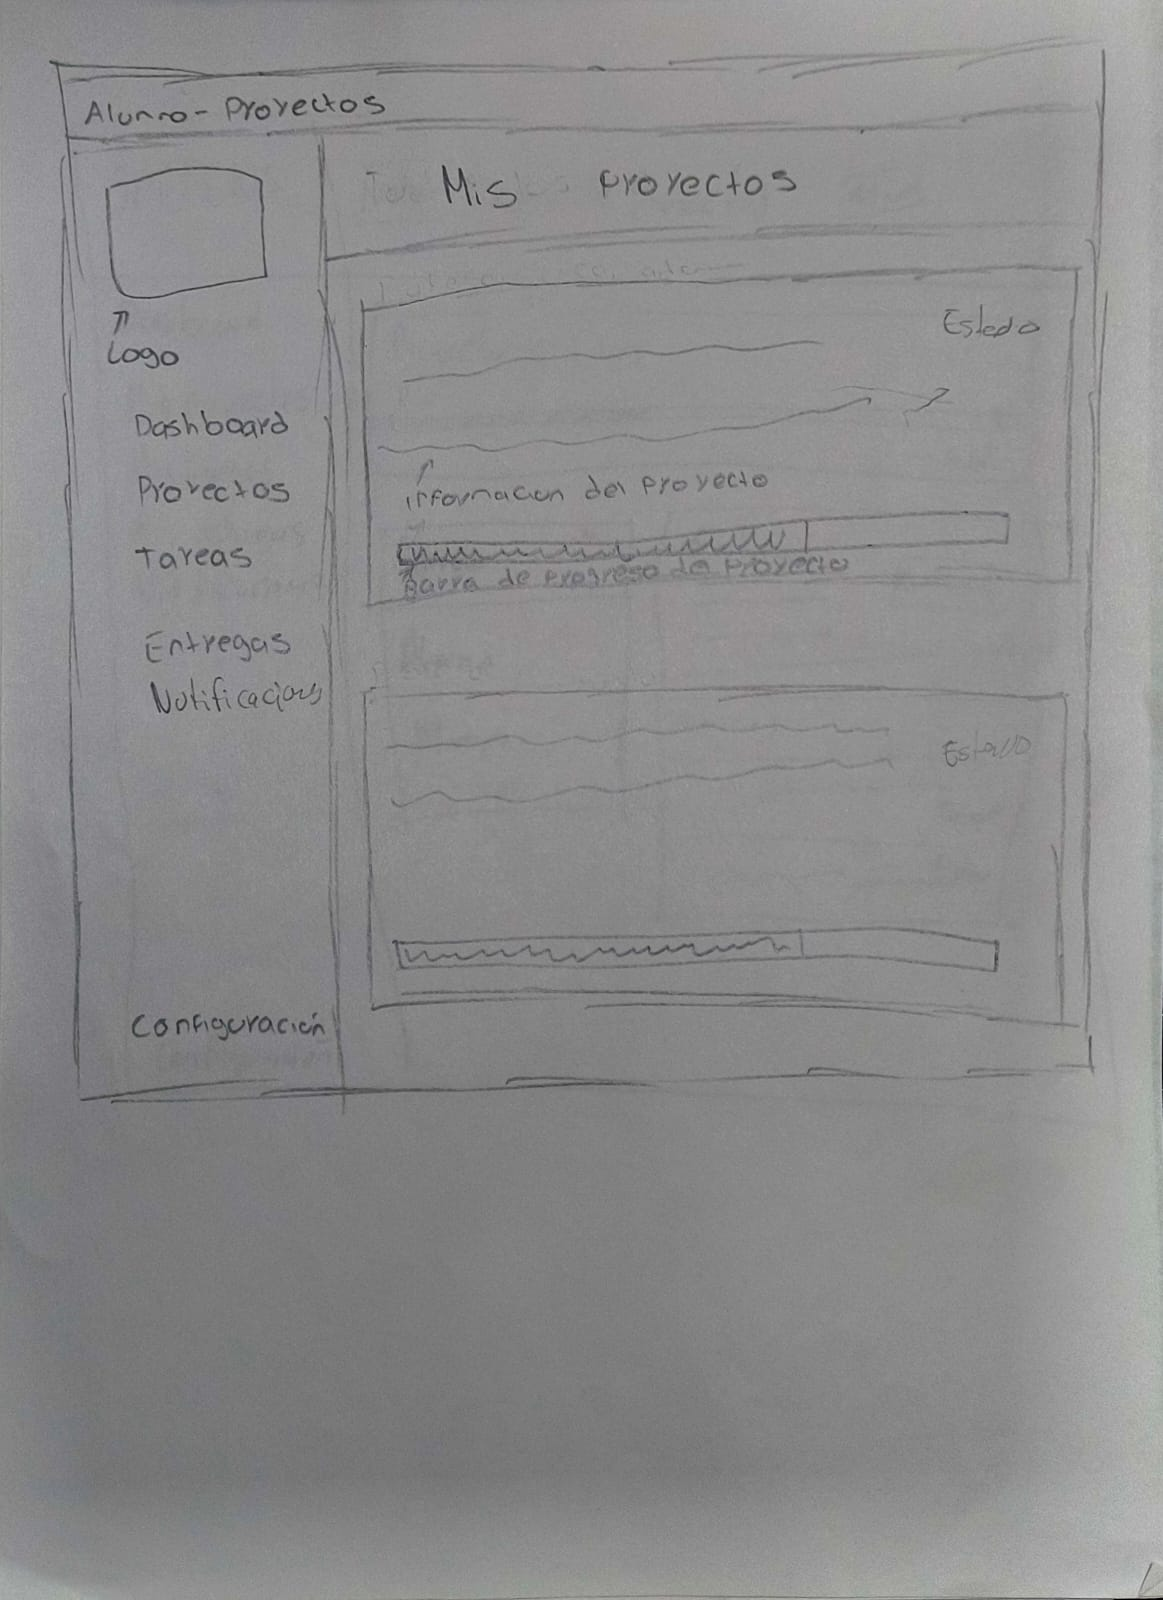 Alumno - Proyectos
Mis Proyectos
Logo
Dashboard
Proyectos
Tareas
Entregas
Notificaciones
Configuración
Estado
informacion del Proyecto
Barra de Progreso del Proyecto
Estado